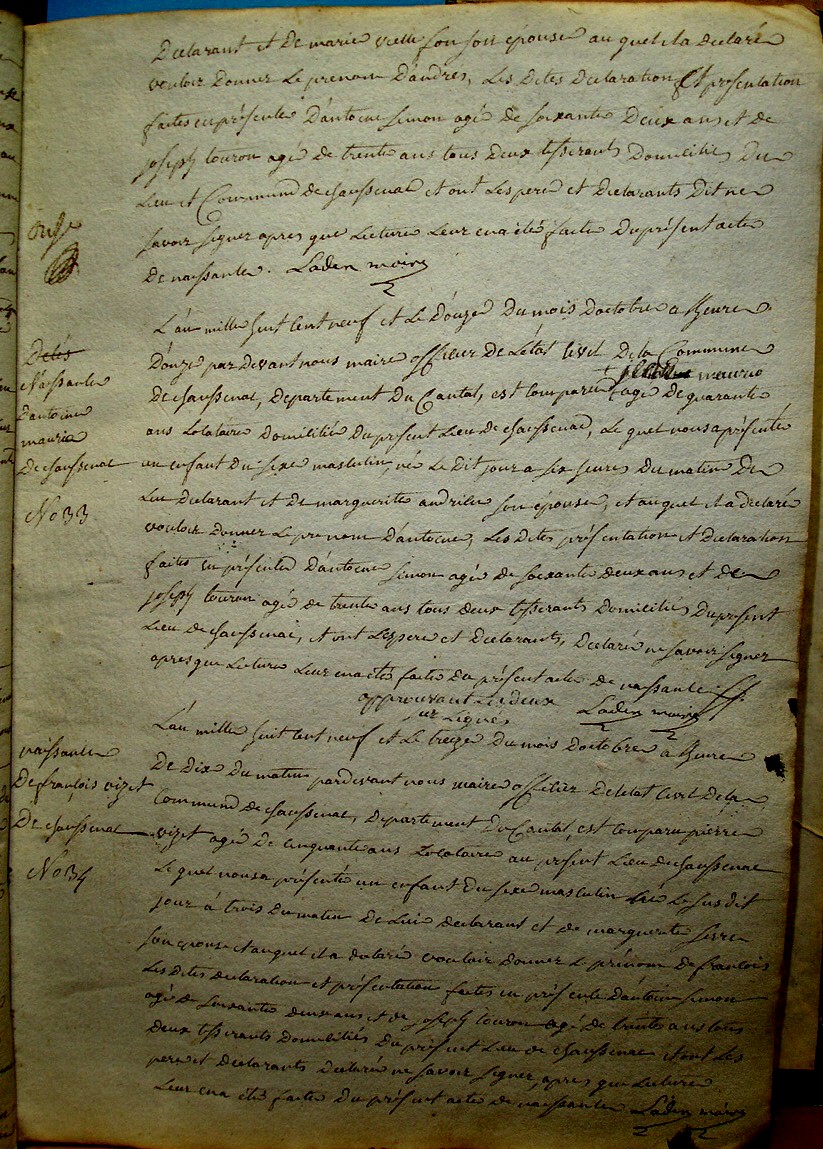 Déclarant et De marie vielle fon son épouse auquel il a déclaré
vouloir Donner Le prénom D'andré, Les Dites Déclaration Et présentation
faites en présence D'antoine simon agé De soixante Deux ans et De
joseph touron agé De trente ans tous Deux tisserants Domiciliés Du
Lieu et Commune De chaussenac et ont Les pere et Déclarants Dit ne
savoir signer apres que Lecture Leur en a été faite Du présent acte
De naissance. Laden maire
onze
L'an mille huit cent neuf et Le Douze Du mois D'octobre a heure
Douze pardevant nous maire officier De L'état civil De la Commune
De chaussenac, Departement Du Cantal, est comparu jean maurio agé De quarante
ans Locataire Domicilié Du présent Lieu De chaussenac, Le quel nous a présenté
un enfant Du sexe masculin, né Le Dit jour a six heures Du matin De
Lui Declarant et De marguerite andrieu son épouse, et auquel il a déclaré
vouloir Donner Le prenom D'antoine, Les Dites présentation et Déclaration
faites en présence D'antoine simon agé De soixante deux ans et De
joseph touron agé De trente ans tous Deux tisserants Domiciliés Du présent
Lieu De chaussenac, et ont Les pere et Declarants, Declaré ne savoir signer
apres que Lecture Leur en a été faite du présent acte De naissance
approuvant Les deux
sur Lignes Laden maire
Décès
Naissance
D'antoine
maurio
De chaussenac
No 33
L'an mille huit cent neuf et Le treize Du mois D'octobre a heure
De Dix Du matin pardevant nous maire officier De L'état Civil De la
Commune De chaussenac, Département Du Cantal, est comparu pierre
vizet agé De cinquante ans Locataire au présent Lieu De chaussenac
Le quel nous a présenté un enfant Du sexe masculin né Le susdit
jour à trois Du matin De Lui Declarant et De marguerite serre
son épouse et auquel il a declaré vouloir Donner Le prénom De françois
Les Dites Declaration et présentation faites en présence D'antoine simon
agé De soixante deux ans et De joseph touron agé De trente ans tous
Deux tisserants Domiciliés Du présent Lieu De chaussenac et ont Les
pere et Declarants Declaré ne savoir signer, apres que Lecture
Leur en a été faite Du présent acte De naissance Laden maire
naissance
De françois vizet
De chaussenac
No 34